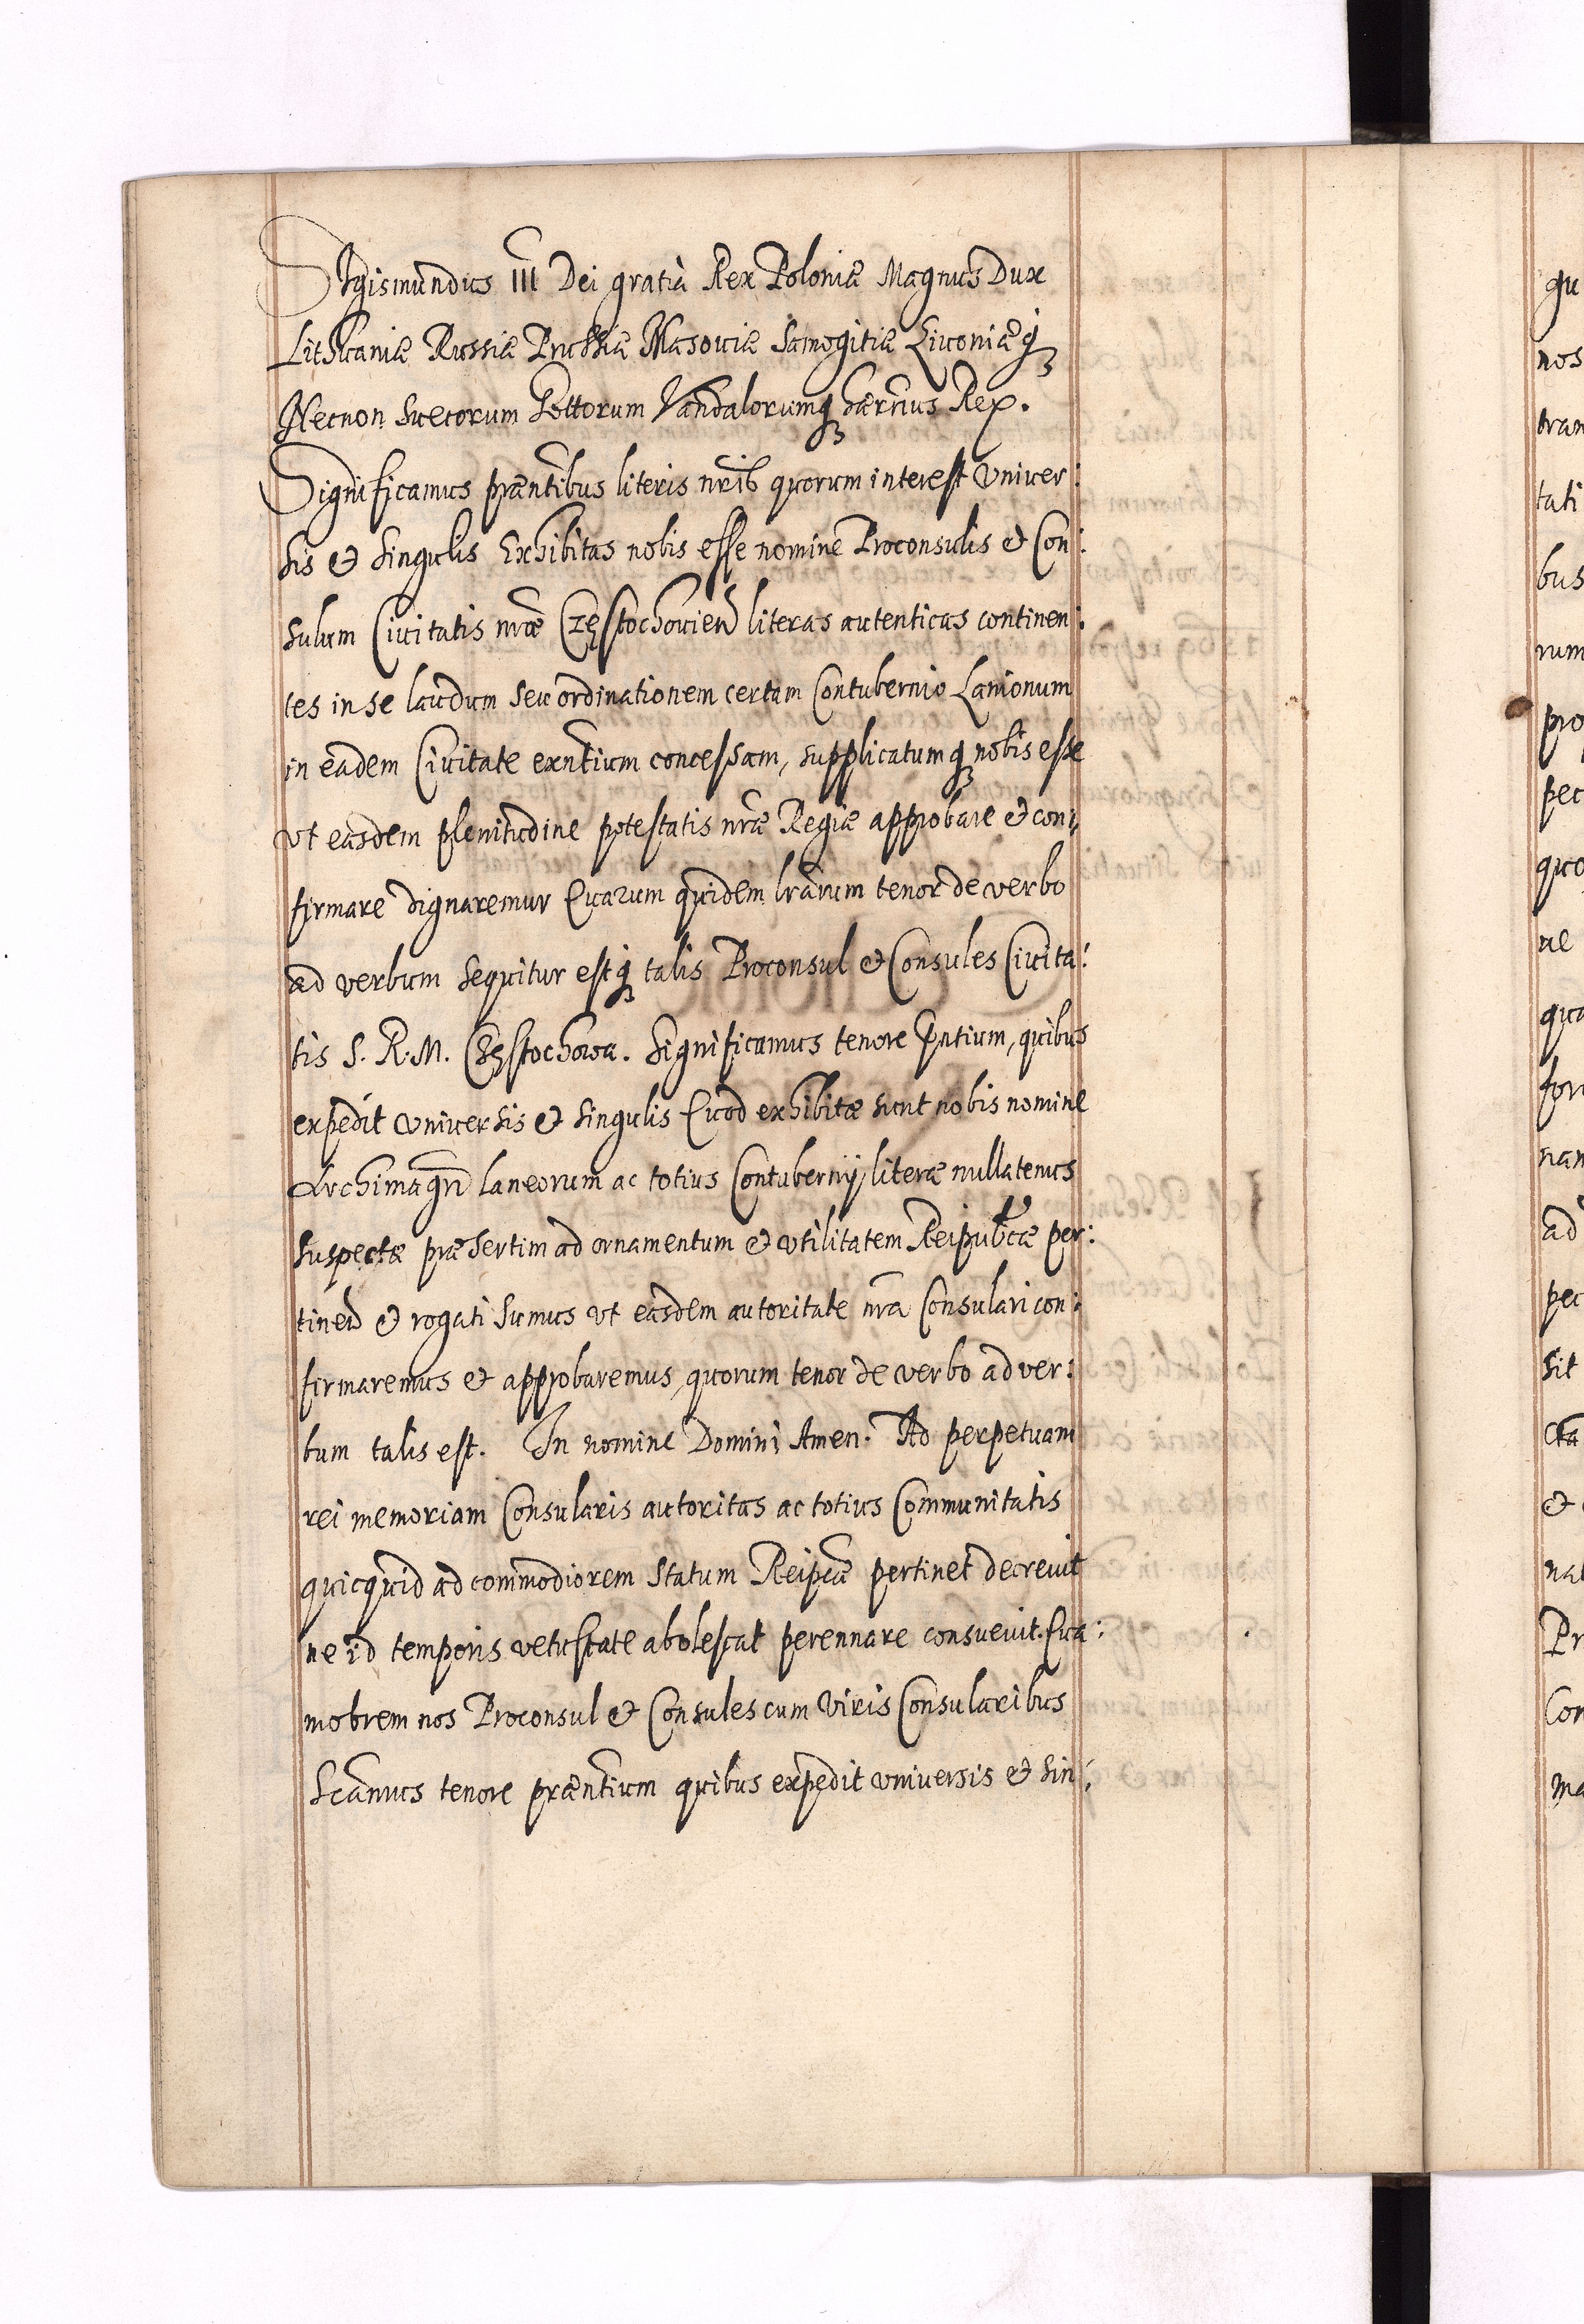 Sigismundus III Dei gratia Rex Poloniæ Magnus Dux
Lithuaniæ Russiæ Prussiæ Masouiæ Samogitiæ Liuoniæq́
Necnon Suecorum Gottorum Vandalorumq́ hærtius Rex.
Significamus præntibus literis nris quorum interest Vniuer:
sis et singulis Exhibitas nobis esse nomine Proconsulis et Con:
sulum Ciuitatis nræ Częstochouien literas autenticas continen:
tes in se laudum seu ordinationem certam Contubernio Lanionum
in eadem Ciuitate exntium concessam, supplicatumq́ nobis esse
Vt easdem plenitudine potestatis nræ Regiæ approbare et con:
firmare dignaremur Quarum quidem lrarum tenor de verbo
ad verbum sequitur estq́ talis Proconsul et Consules Ciuita:
tis S. R. M. Częstochowa. Significamus tenore pntium, quibus
expedit vniuersis et singulis Quod exhibitæ sunt nobis nomine
Archimagrī laneorum ac totius Contubernij literæ nullatenus
suspectæ præsertim ad ornamentum et vtilitatem Reipubcæ per:
tinen et rogati sumus vt easdem autoritate nra Consulari con:
firmaremus et approbaremus, quorum tenor de verbo ad ver:
bum talis est. In nomine Domini Amen. Ad perpetuam
rei memoriam Consularis autoritas ac totius Communitatis
quicquid ad commodiorem statum Reipcæ pertinet decreuit
ne id temporis vetustate abolescat perennare consueuit. Qua:
mobrem nos Proconsul et Consules cum Viris Consularibus
Scamus tenore præntium quibus expedit vniuersis et sin: